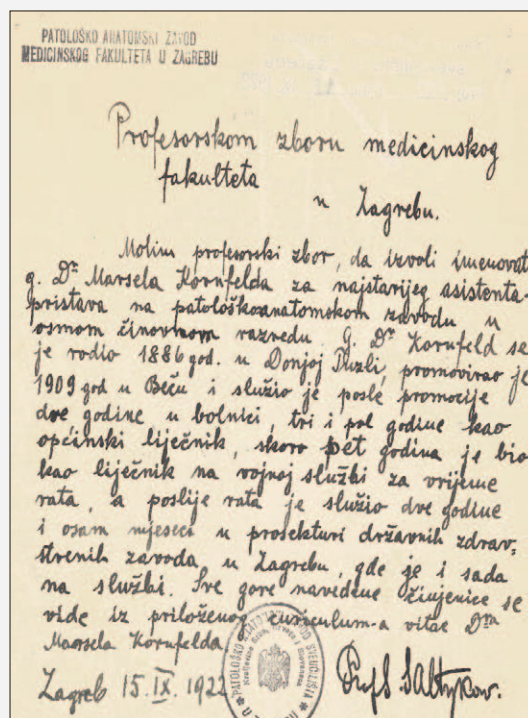 PATOLOŠKO ANATOMSKI ZAVOD
MEDICINSKOG FAKULTETA U ZAGREBU
Profesorskom zboru medicinskog
fakulteta
u Zagrebu.
Molim profesorski zbor, da izvoli imenovat
g. Dr Marsela Kornfelda za najstarijeg asistenta-
pristava na patološkoanatomskom zavodu u
osmom činovnom razredu. G. Dr Kornfeld se
je rodio 1886 god. u Donjoj Tuzli, promovirao je
1909 god u Beču i služio je posle promocije
dve godine u bolnici, tri i pol godine kao
općinski liječnik, skoro pet godina je bio
kao liječnik na vojnoj službi za vrijeme
rata, a poslije rata je služio dve godine
i osam mjeseci u prosekturi državnih zdrav=
stvenih zavoda u Zagrebu, gde je i sada
na službi. Sve gore navedene činjenice se
vide iz priloženog curiculum-a vitae Dra
Marsela Kornfelda.
Zagreb 15.IX.1922 Prof S. Saltykow.